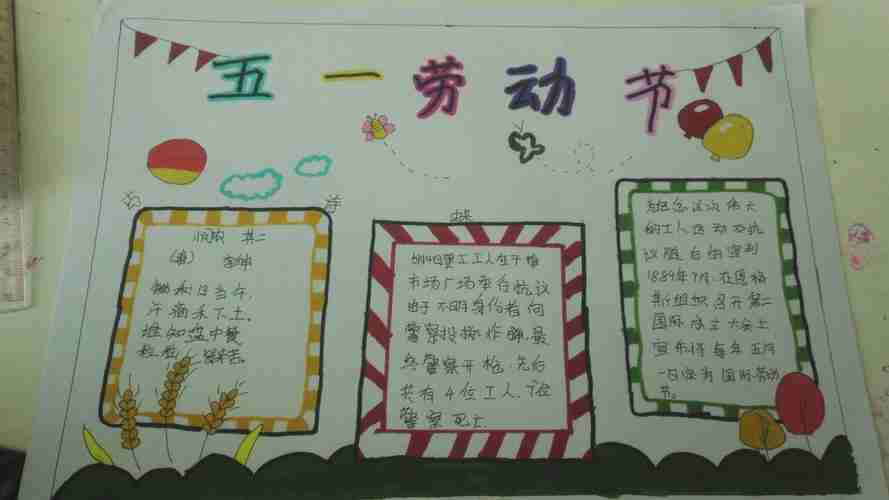 五一劳动节
悯农 其二
(唐) 李绅
锄禾日当午,
汗滴禾下土。
谁知盘中餐
粒粒皆辛苦。
5月4日罢工工人在干植
市场广场举行抗议
由于不明身份者向
警察投掷炸弹,最
终警察开枪,先后
共有4位工人、7位
警察死亡
为纪念这次伟大
的工人运动及抗
议随后的宣判
1889年7月,在恩格
斯组织召开第二
国际成立大会上
宣布将每年五月
一日定为国际劳动
节。